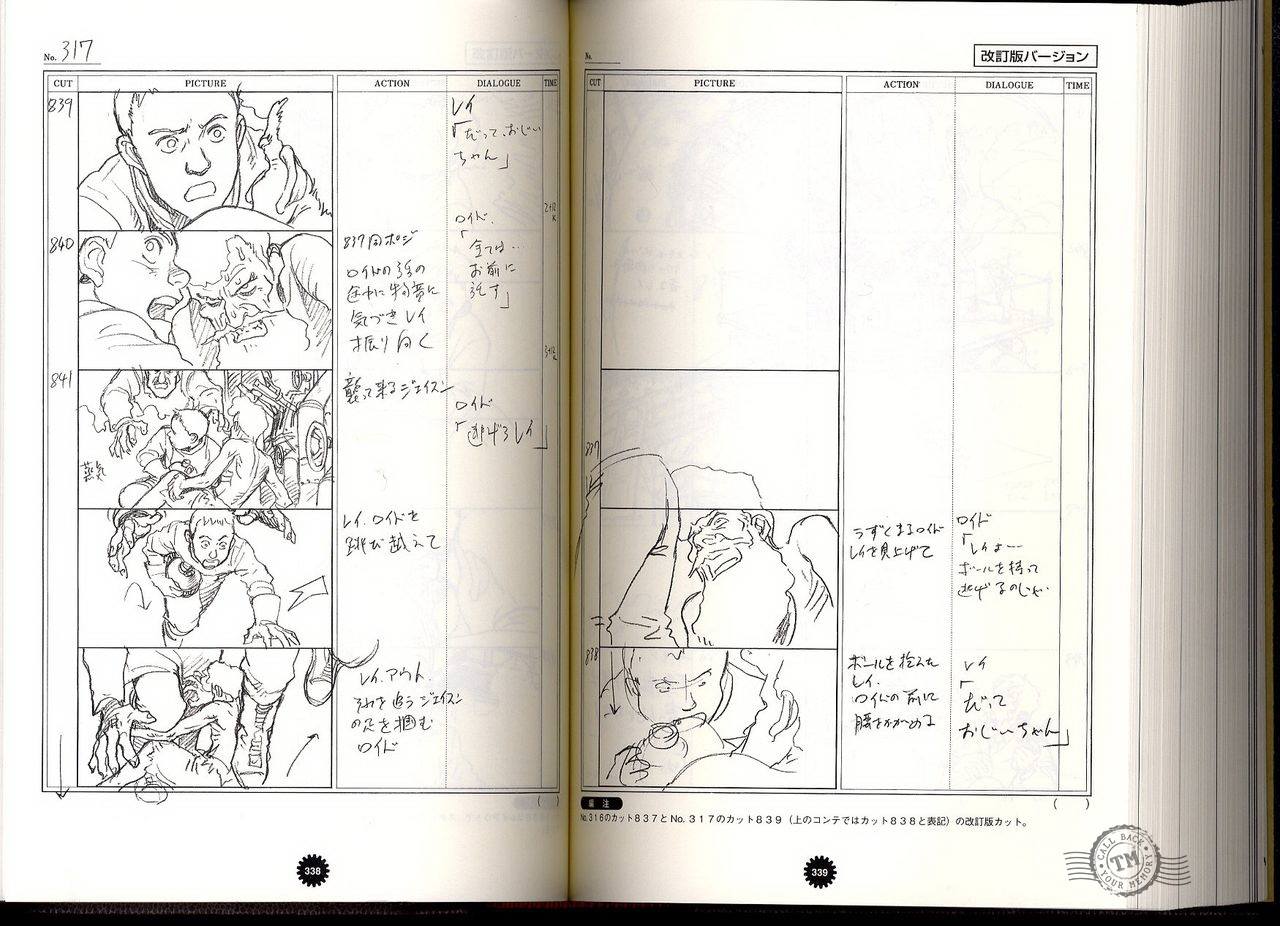 No. 317
CUT
PICTURE
ACTION
DIALOGUE
TIME
839
レイ
「だって、おじい
ちゃん」
2+12
K
840
837同ポジ
ロイドの話の
途中に物音に
気づきレイ
振り向く
ロイド.
「全ては…
お前に
託す」
3+12
841
蒸気
襲って来るジェイスン
ロイド
「逃げろレイ」
レイ.ロイドを
跳び越えて
レイ.アウト.
それを追うジェイスン
の足を掴む
ロイド
( )
338
No.
改訂版バージョン
CUT
PICTURE
ACTION
DIALOGUE
TIME
837
うずくまるロイド
レイを見上げて
ロイド
「レイよ…
ボールを持って
逃げるのじゃ
838
ボールを拾えた
レイ.
ロイドの前に
腰をかがめる
レイ
「だって
おじいちゃん」
( )
編 注
No.316のカット837とNo.317のカット839（上のコンテではカット838と表記）の改訂版カット。
339
CALL BACK
TM
YOUR MEMORY